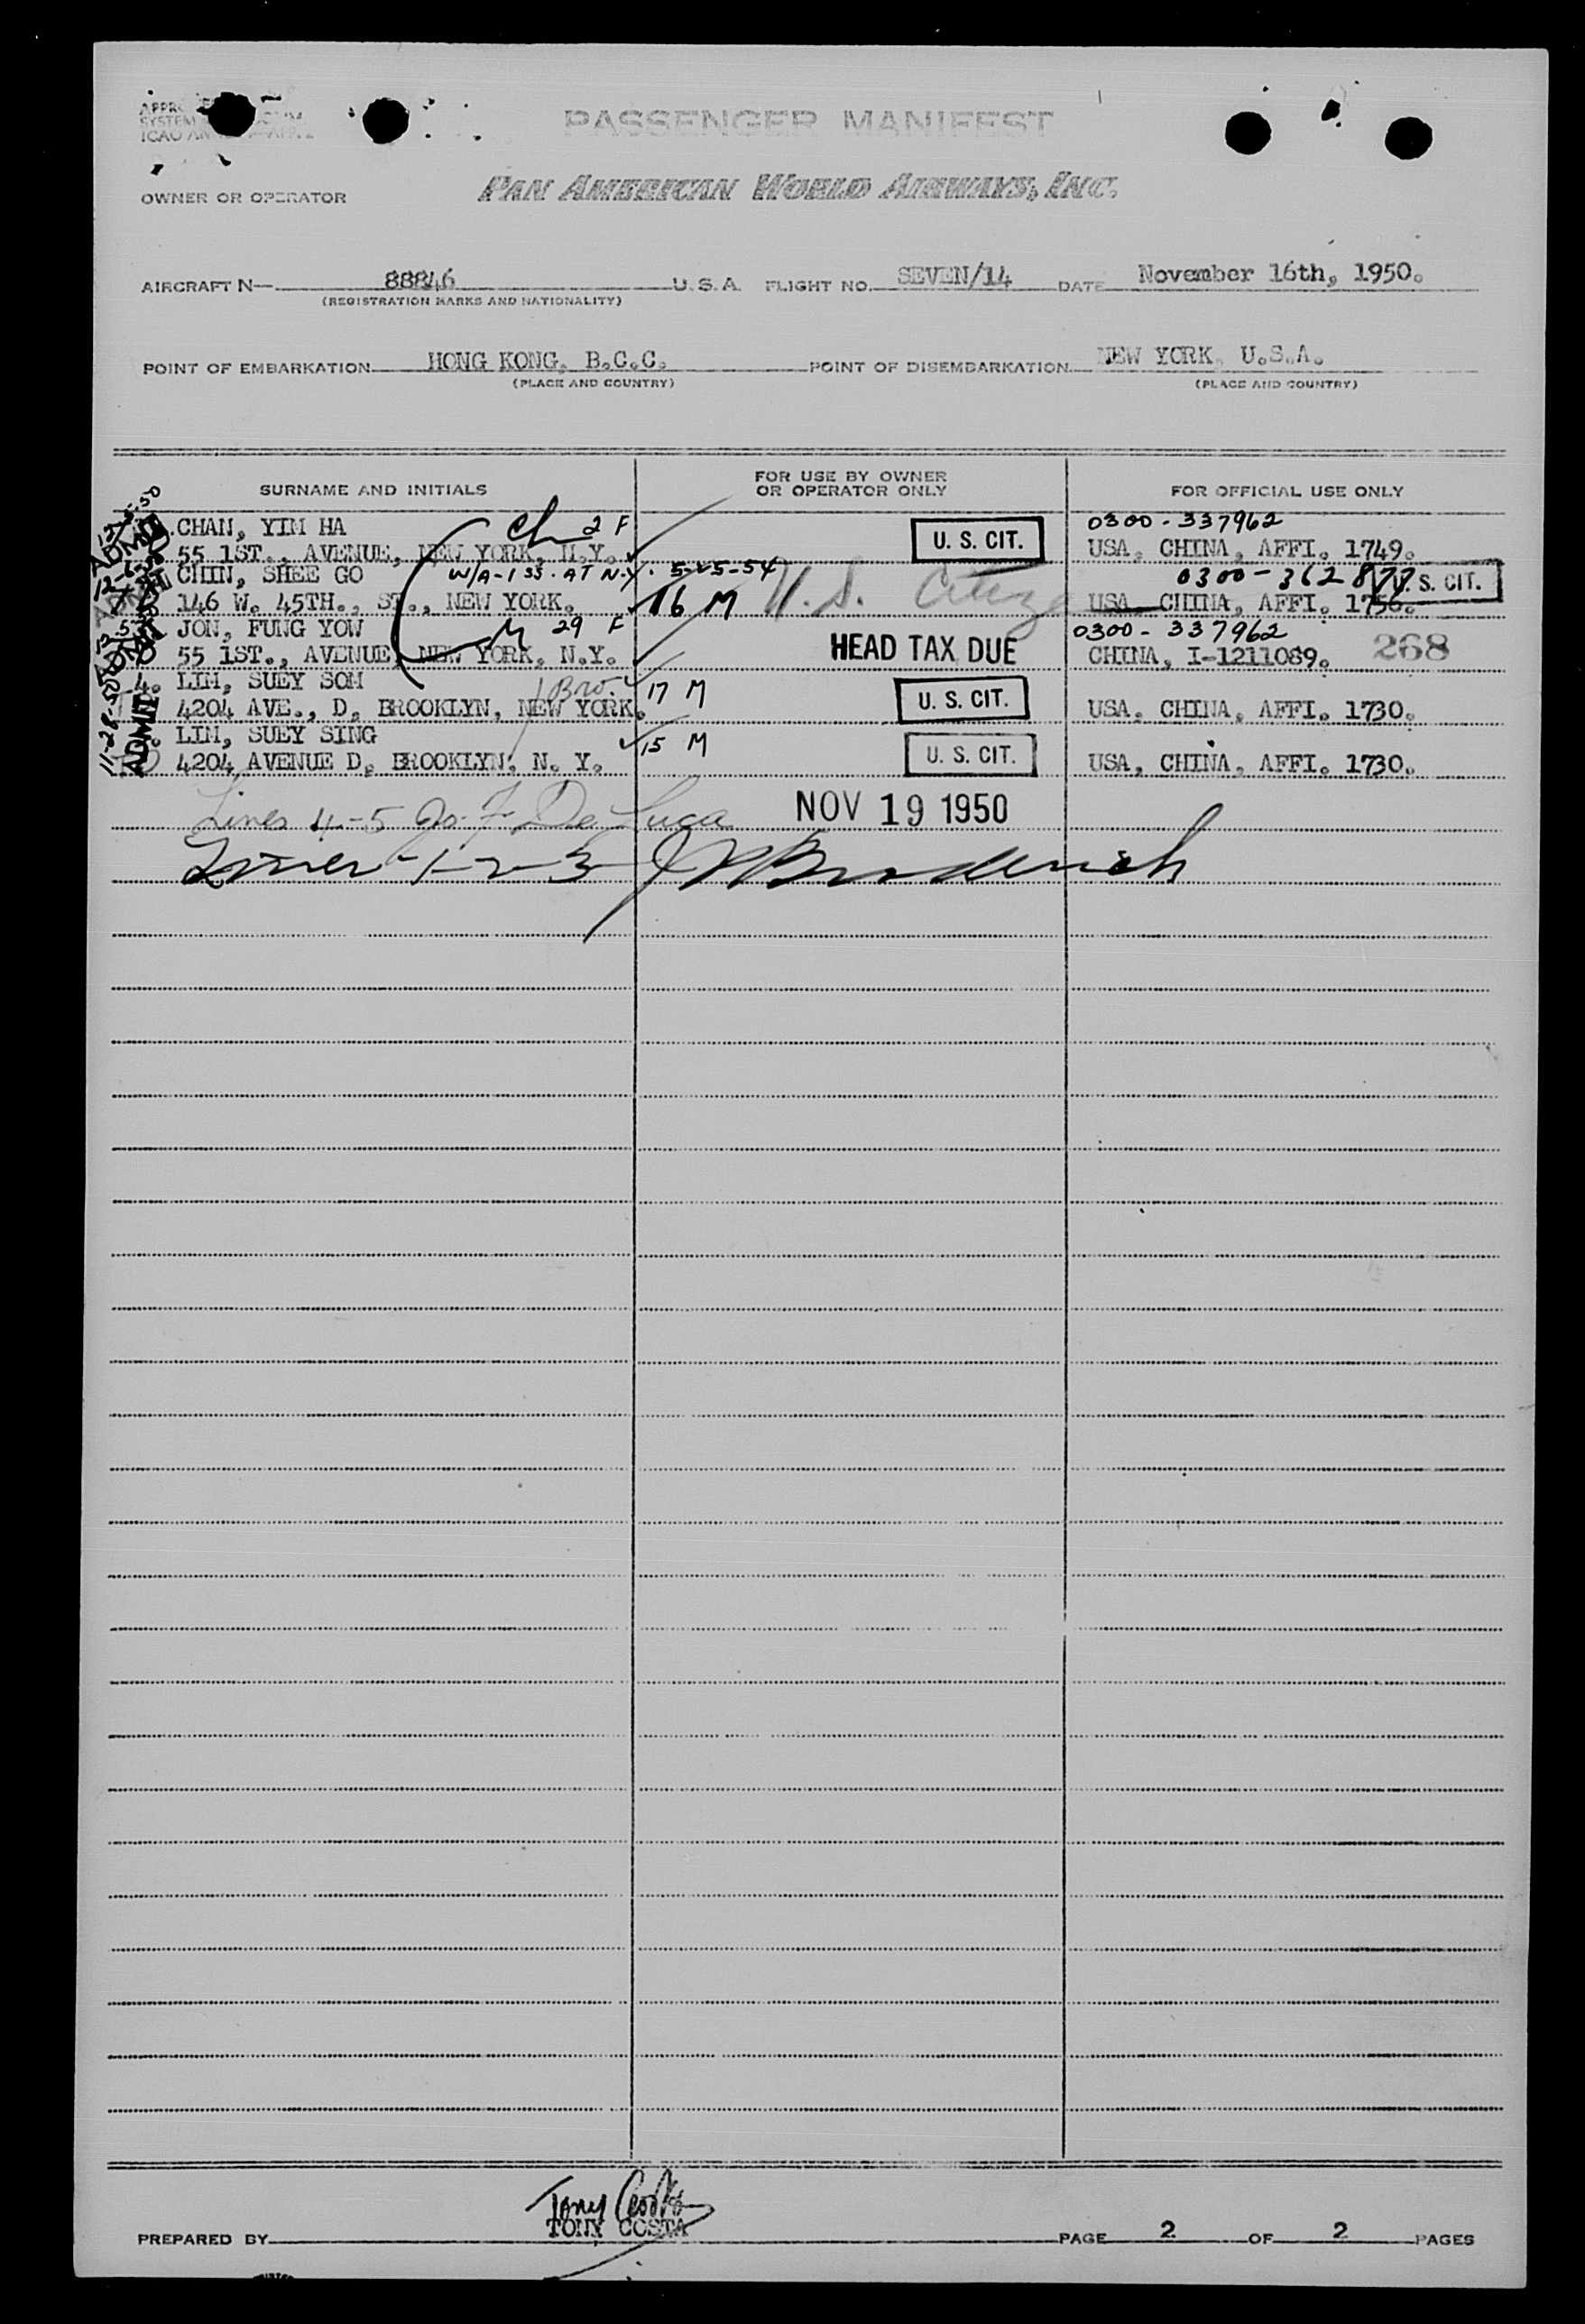 PASSENGER MANIFEST
OWNER OR OPERATOR PAN AMERICAN WORLD AIRWAYS, INC.
AIRCRAFT N— 88846 U.S.A. FLIGHT NO. SEVEN/14 DATE November 16th, 1950.
(REGISTRATION MARKS AND NATIONALITY)
POINT OF EMBARKATION HONG KONG, B.C.C. POINT OF DISEMBARKATION NEW YORK, U.S.A.
(PLACE AND COUNTRY) (PLACE AND COUNTRY)
SURNAME AND INITIALS FOR USE BY OWNER OR OPERATOR ONLY FOR OFFICIAL USE ONLY
CHAN, YIM HA ch 2 F U. S. CIT. 0300-337962
55 1ST., AVENUE, NEW YORK, N.Y. USA, CHINA, AFFI. 1749.
CHIN, SHEE GO W/A-155. AT N.Y. 5-25-54 U.S. 0300-362877 U. S. CIT.
146 W. 45TH., ST., NEW YORK. 16 M USA CHINA, AFFI. 1756.
JON, FUNG YOW M 29 F HEAD TAX DUE 0300-337962
55 1ST., AVENUE, NEW YORK, N.Y. CHINA, I-1211089. 268
4. LIM, SUEY SOM Bro. 17 M U. S. CIT.
4204 AVE., D, BROOKLYN, NEW YORK. USA, CHINA, AFFI. 1730.
LIM, SUEY SING 15 M U. S. CIT.
4204 AVENUE D, BROOKLYN, N. Y. USA, CHINA, AFFI. 1730.
11-28-50 ADMIT
Lines 4-5 Jo. F. De Luca NOV 19 1950
Lines 1-2-3
Tony Costa
PREPARED BY TONY COSTA PAGE 2 OF 2 PAGES